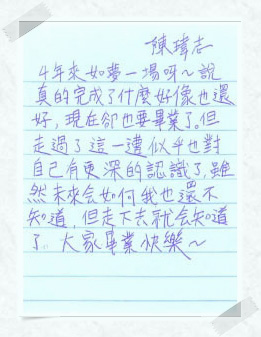 陳瑋志
4年來如夢一場呀～說
真的完成了什麼好像也還
好,現在卻也要畢業了。但
走過了這一遭似乎也對
自己有更深的認識了,雖
然未來会如何我也還不
知道,但走下去就会知道
了。大家畢業快樂～